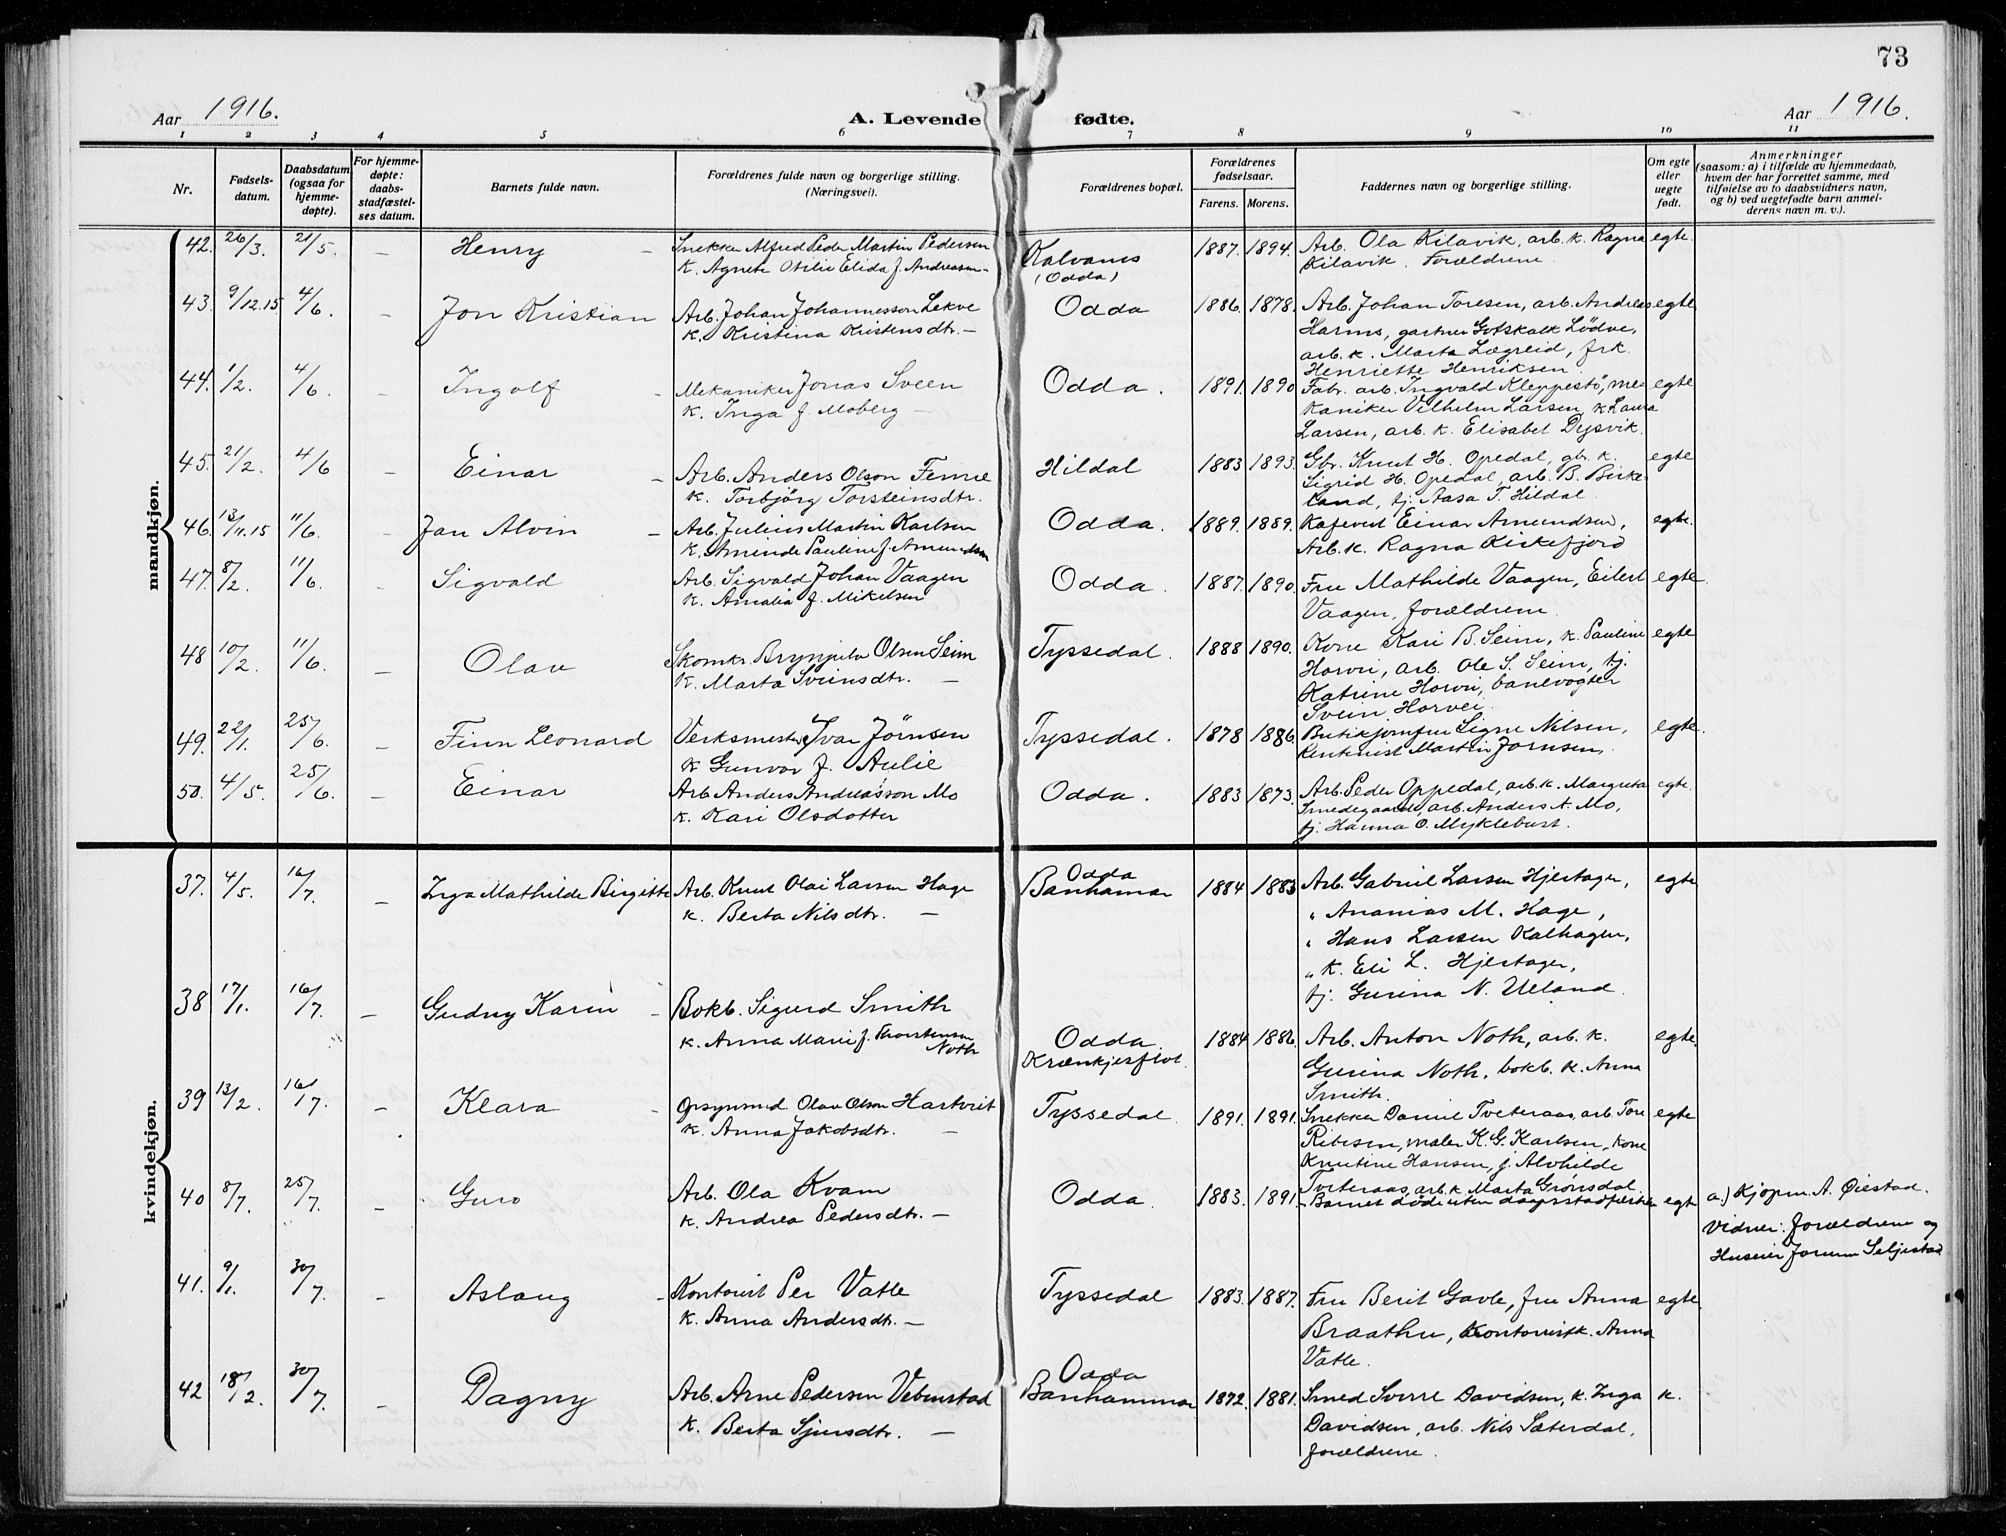 73
Aar 1916.
A. Levende fødte.
Aar 1916.
1 2 3 4 5 6 7 8 9 10 11
Nr.
Fødsels-
datum.
Daabsdatum
(ogsaa for
hjemme-
døpte).
For hjemme-
døpte:
daabs-
stadfæstel-
ses datum.
Barnets fulde navn.
Forældrenes fulde navn og borgerlige stilling.
(Næringsvei).
Forældrenes bopæl.
Forældrenes
fødselsaar.
Farens. Morens.
Faddernes navn og borgerlige stilling.
Om egte
eller
uegte
født.
Anmerkninger
(saasom: a) i tilfælde av hjemmedaab,
hvem der har forrettet samme, med
tilføielse av to daabsvidners navn,
og b) ved uegtefødte barn anmel-
derens navn m. v.).
mandkjøn.
42. 26/3. 21/5. - Henry - Snekker Alfred Peder Martin Pedersen
K. Agnete Otilie Elida f. Andreasen -
Kalvanes
(Odda)
1887. 1894. Arb. Ola Kilavik, arb. k. Ragna egte.
Kilavik. Forældrene
43. 9/12.15 4/6. - Jon Kristian Arb. Johan Johannesson Lekve
K. Kristina Kristensdtr. -
Odda 1886. 1878. Arb. Johan Toresen, arb. Andreas egte
Harms, gartner Gotskalk Lödve,
arb. k. Marta Lægreid, frk.
Henriette Henriksen.
44. 1/2. 4/6. - Ingolf - Mekaniker Jonas Sveen
K. Inga f. Moberg -
Odda. 1891. 1890 Fabr. arb. Ingvald Kleppestö, me- egte
kaniker Vilhelm Larsen, k. Laura
Larsen, arb. k. Elisabet Dysvik.
45. 21/2. 4/6 - Einar - Arb. Anders Olson Femre
K. Torbjörg Torsteinsdtr.
Hildal 1883 1893. Gbr. Knut H. Opedal, gbr. k. egte
Sigrid H. Opedal, arb. B. Birke-
land, tj. Aasa T. Hildal
46. 13/11.15 11/6. - Jan Alvin - Arb. Julius Martin Karlsen
K. Amende Pauline f. Amundsen
Odda. 1889. 1889. Kafevert Einar Amundsen, egte.
Arb. k. Ragna Kirkefjord
47. 8/2. 11/6. - Sigvald Arb. Sigvald Johan Vaagen
K. Amalia f. Mikelsen
Odda. 1887. 1890. Fru Mathilde Vaagen, Eilert egte.
Vaagen, forældrene.
48 10/2. 11/6. - Olav Skomkr. Brynjulv Olsen Seim
K. Marta Sveinsdtr. -
Tyssedal. 1888 1890. Kone Kari B. Seim, k. Pauline egte
Horvei, arb. Ole S. Seim, tj.
Katrine Horvei, banevogter
Svein Horvei.
49. 22/1. 25/6. - Finn Leonard Verksmester Ivar Jørnsen
K Gunvor f. Aulie
Tyssedal. 1878 1886. Butikjomfru Signe Nilsen, egte.
Kontorist Martin Jørnsen,
50. 4/5. 25/6. - Einar Arb. Anders Andreasson Mo
K. Kari Olsdotter
Odda. 1883 1873. Arb. Peder Oppedal, arb. k. Margreta egte.
Smedegaard, arb. Anders A. Mo,
tj. Hanna O. Myklebust.
kvindekjøn.
37. 4/5. 16/7. - Inga Mathilde Birgitte Arb. Knut Olai Larsen Hage
K. Berta Nilsdtr. -
Odda
Banhamar
1884 1883 Arb. Gabriel Larsen Hjertager, egte
" Ananias M. Hage,
" Hans Larsen Kalhagen,
" K. Eli L. Hjertager,
tj. Gurina N. Ueland.
38 17/1. 16/7. - Gudny Karin - Bokb. Sigurd Smith
K. Anna Marie f. Thorstensen
Noth
Odda
1884 1886. Arb. Anton Noth, arb. k. egte.
Gurina Noth, bokb. k. Anna
Smith.
39 13/2. 16/7. - Klara - Opsynsmd Olav Olson Hartveit
K. Anna Jakobsdtr. -
Tyssedal. 1891. 1891. Snekker Daniel Tveteraas, arb. Tore egte
Ribesen, maler K. G. Karlsen, kone
Knutine Hansen, j. Alvhilde
Tveteraas, arb. k. Marta Grönsdal
40 8/7. 25/7. - Guro Arb. Ola Kvam
K. Andrea Pedersdtr. -
Odda. 1883. 1891. - Barnet döde uten daapsstadfæstelse egte a.) Kjöpm. A. Øiestad.
Vidner: forældrene og
Huseier Seljestad
41. 9/1. 30/7. - Aslaug - Kontorist Per Vatle
K. Anna Andersdtr. -
Tyssedal 1883. 1887. Fru Berit Gavle, fru Anna egte.
Braathen, Kontoristk. Anna
Vatle.
42 18/2. 30/7. - Dagny Arb. Arne Pedersen
K. Berta Sjursdtr. -
Odda
Banhammar
1872. 1881. Smed Sverre Davidsen, k. Inga k.
Davidsen, arb. Nils Sæterdal,
forældrene.